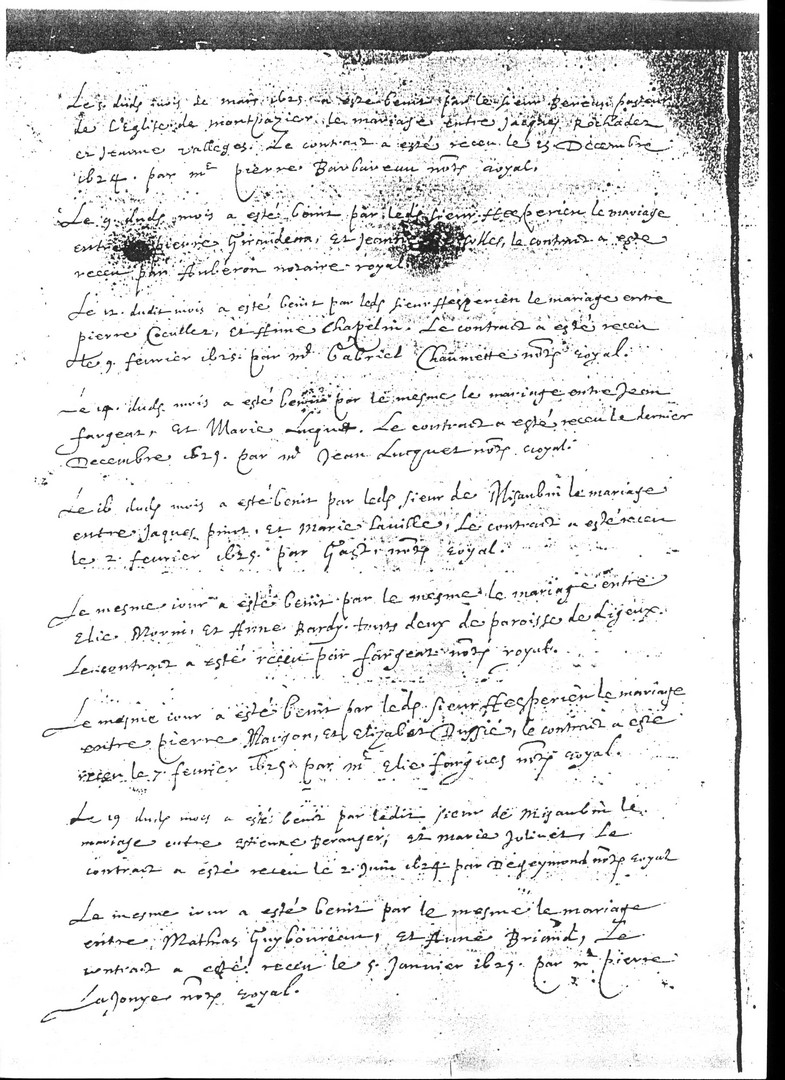 Le 5. dud. mois de mars 1625. a esté benit par le sieur Bereau pasteur
de L'Eglise de montpazier le mariage entre Jacques Rochadez
et Jeanne valleges. Le contract a esté receu le 15 Decembre
1624. par me pierre Barbareau nore royal.
Le 9. dud. mois a esté benit par led. sieur Hesperien le mariage
entre pierre Giraudeau, et Jeanne le contract a esté
receu par Auberon notaire royal
Le 12. dudit mois a esté benit par led. sieur Hesperien le mariage entre
pierre Cocullet, et Anne Chapelin. Le contract a esté receu
le 9. fevrier 1625. par me Gabriel Chaumette nore royal.
Le 14. dud. mois a esté benit par le mesme le mariage entre Jean
fargeat, et Marie Lucquet. Le contract a esté receu le dernier
Decembre par me Jean Lucquet nore royal.
Le 16 dud. mois a esté benit par led. sieur de Misaubin le mariage
entre Jaques pinot, et Marie Laville, Le contract a esté receu
le 2. fevrier 1625. par Gast nore royal.
Le mesme iour a esté benit par le mesme le mariage entre
Elie Morin, et Anne Bardy touts deux de paroisse de Ligeux.
Le contract a esté receu par fargeat nore royal.
Le mesme iour a esté benit par led. sieur Hesperien le mariage
entre pierre et Elizabet Dussié, le contract a esté
receu le 7. fevrier 1625. par me Elie forgues nore royal.
Le 19 dud. mois a esté benit par ledit sieur de Misaubin le
mariage entre Estienne Beranger, et marie Jolivet, Le
contract a esté receu le 2. Juin 1624. par Degeymond nore royal
Le mesme iour a esté benit par le mesme le mariage
entre, Mathias Guyboureau, et Anne Briand, Le
contract a esté receu le 5. Janvier 1625. par me pierre
Lajonye nore royal.